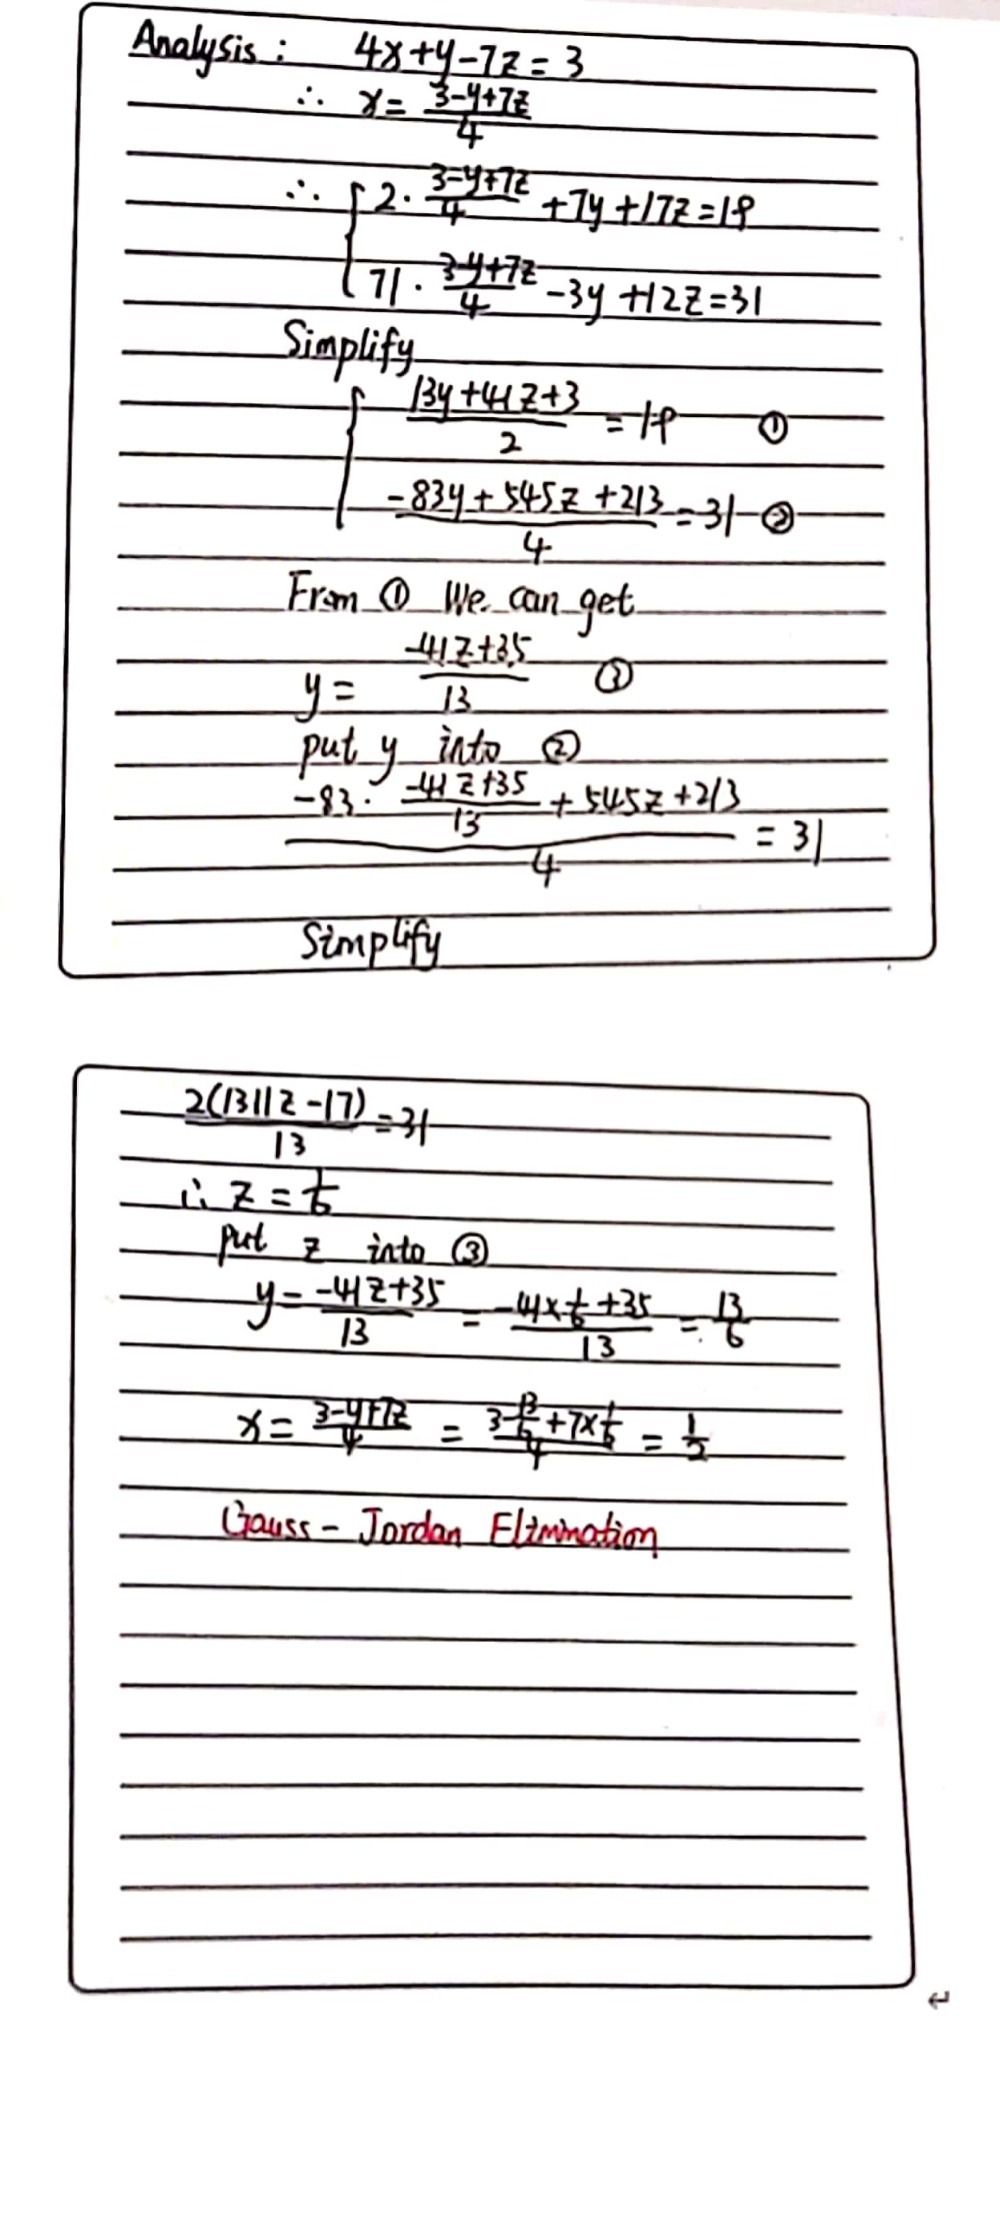 Analysis: 4x+y-7z=3
∴ x= (3-y+7z)/4
∴ { 2·(3-y+7z)/4 +7y+17z=19
71·(3-y+7z)/4 -3y+12z=31
Simplify
{ (13y+41z+3)/2 = 19 ①
(-83y+545z+213)/4 = 31 ②
From ① We can get
y= (-41z+35)/13 ③
put y into ②
(-83·(-41z+35)/13 + 545z+213)/4 = 31
Simplify
2(1311z-17)/13 = 31
∴ z = 1/6
put z into ③
y= (-41z+35)/13 = (-41×1/6+35)/13 = 13/6
x= (3-y+7z)/4 = (3-13/6+7×1/6)/4 = 1/2
Gauss-Jordan Elimination
↵